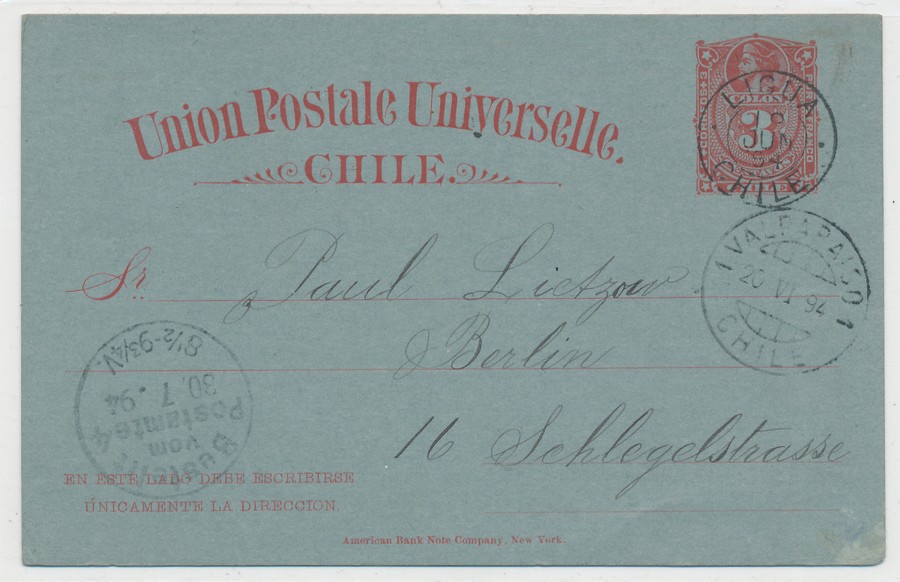 Union Postale Universelle.
CHILE.
COLON
3
LIGUA
CHILE
Sr. Paul Lietzow
Berlin
16 Schlegelstrasse
1 VALPARAISO 1
20 VI 94
CHILE
Bestellt
vom
Postamte 4
30. 7. 94
8½-9¾ N.
EN ESTE LADO DEBE ESCRIBIRSE
ÚNICAMENTE LA DIRECCION.
American Bank Note Company, New York.